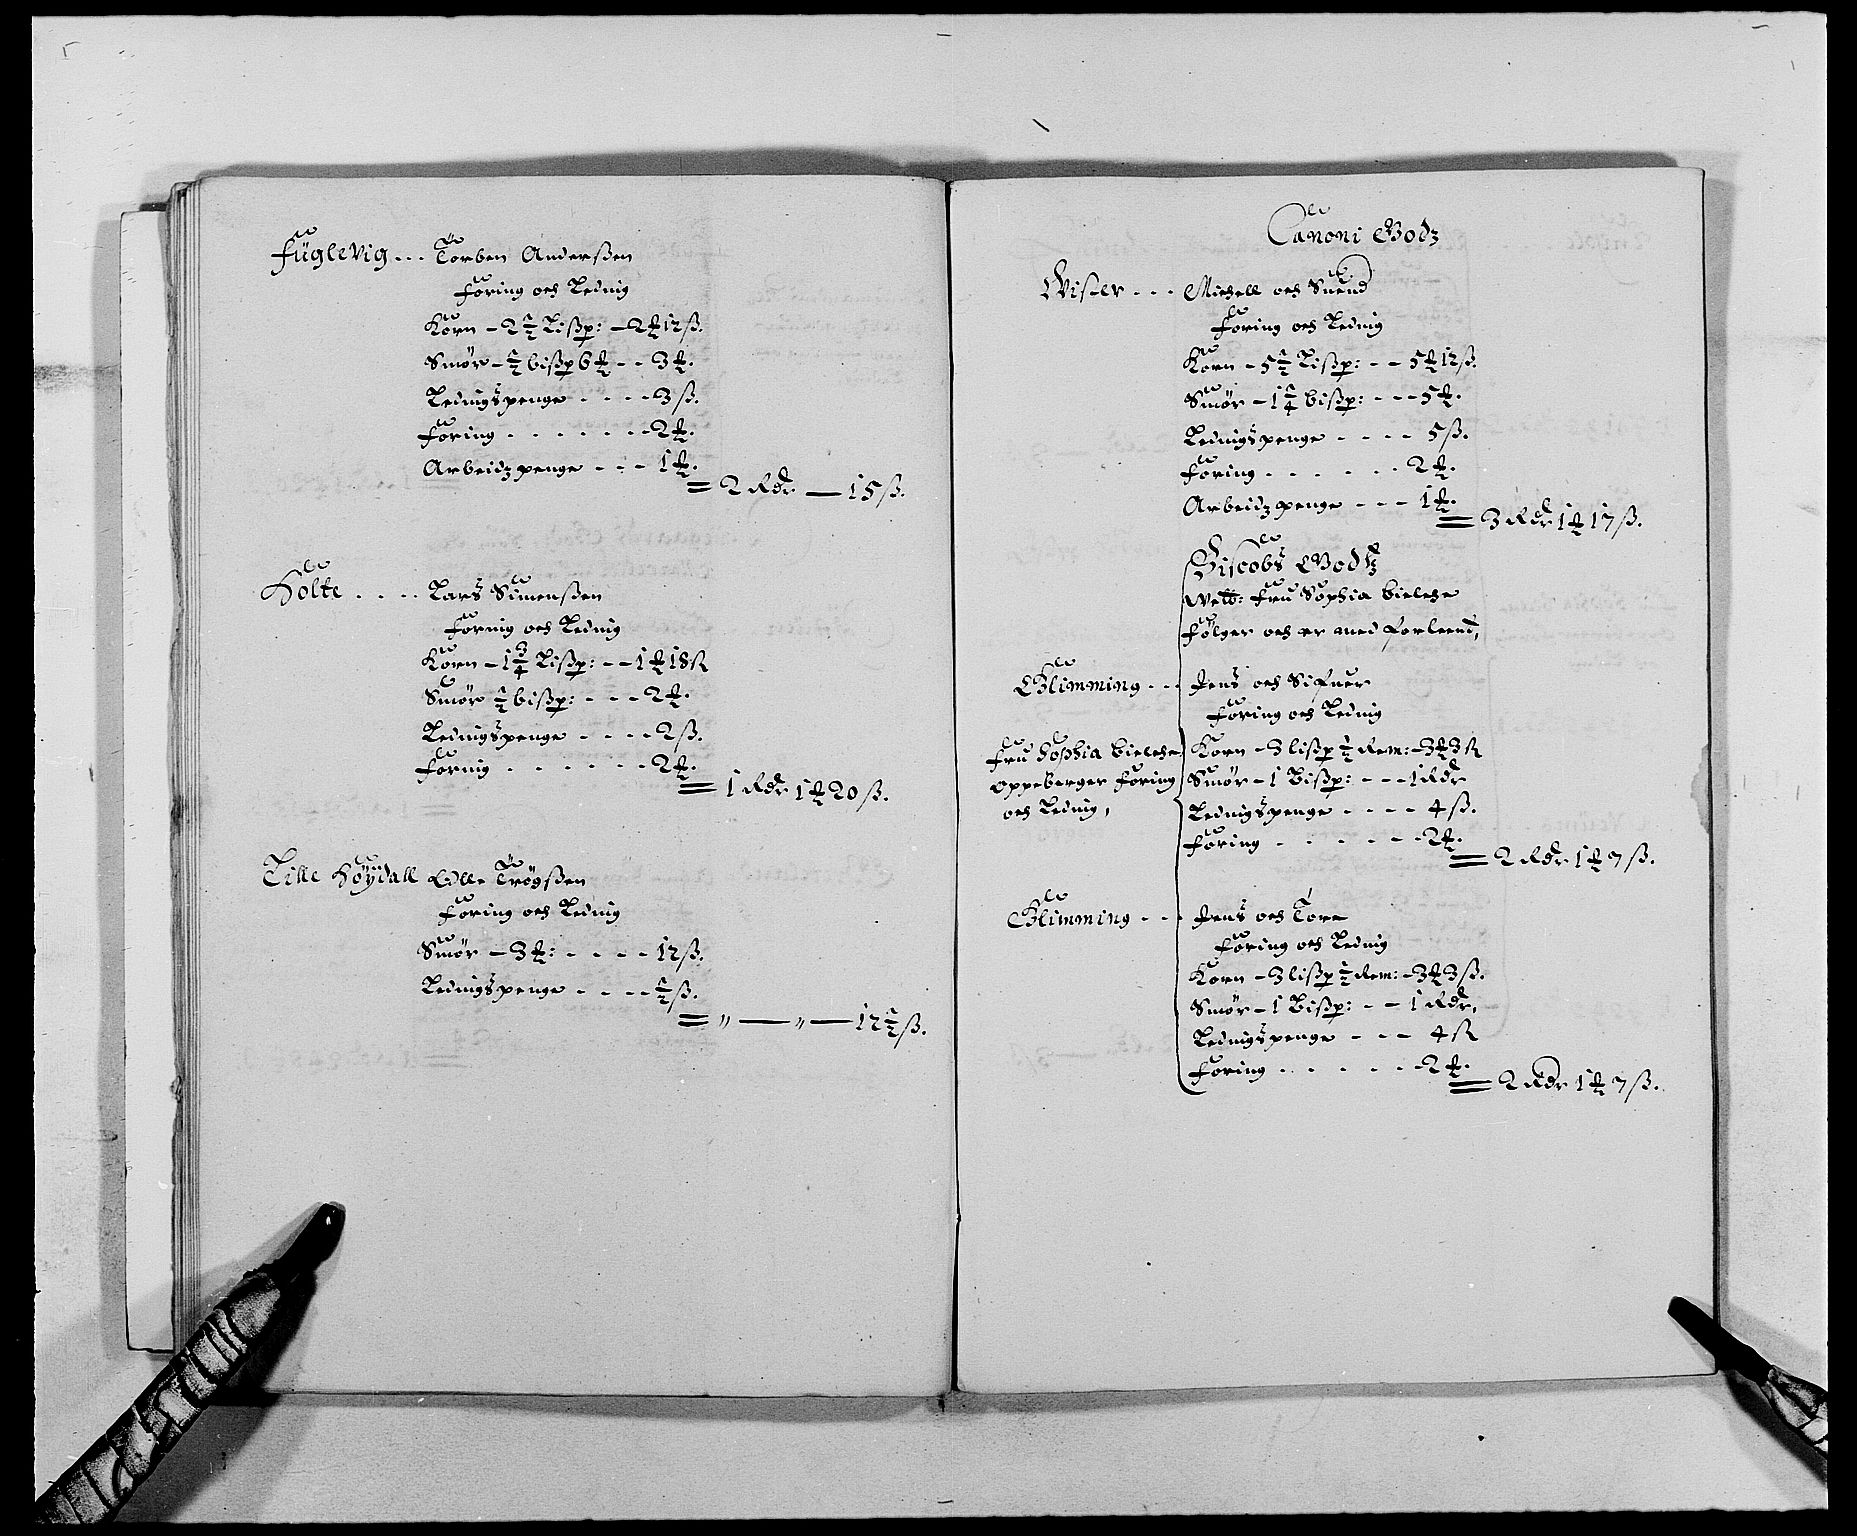 Fuglevig ... Torben Anderßen
Foring och Lednig
Korn - 2½ Lißp: - 2 ℔ 12 ß.
Smør - ½ bißp 6 ℔ - - 3 ℔.
Lednigspenge - - - - 3 ß.
Foring . . . . . - - 2 ℔.
Arbeidzpenge - - - 1 ℔.
= 2 Rdr — 15 ß.
Holte . . . . Lars Simenßen
Fornig och Lednig
Korn - 1¾ Lißp: - - 1 ℔ 18 ß
Smør ½ bißp: - - - 2 ℔.
Lednigspenge - - - - 2 ß.
Fornig . . . . . - - 2 ℔.
= 1 Rdr 1 ℔ 20 ß.
Lille Høÿdall Trogßen
Foring och Lednig
Smør - 3 ℔: - - - - 12 ß.
Lednigspenge - - - - ½ ß.
= " — " — 12½ ß.
Canoni Godz
Wister - - - Michell och Suend
Foring och Lednig
Korn - 5½ Lißp: - - 5 ℔ 12 ß.
Smør - 1¼ bißp: - - - 5 ℔.
Lednigspenge - - - - 5 ß.
Foring . . . . . . 2 ℔.
Arbeidzpenge - - - 1 ℔.
= 3 Rdr 1 ℔ 17 ß.
Biscobs Godtz
Welb: Fru Sophia bielche
Følger och er med forleend,
Glimming - - - Jens och Sifuer
Foring och Lednig
Fru Sophia bielche
oppeberger Foring
och Lednig,
Korn - 3 lißp ½ Rem: - 3 ℔ 3 ß
Smør - 1 Bißp: - - - 1 Rdr
Lednigspenge - - - - 4 ß.
Foring . . . . - - 2 ℔.
= 2 Rdr 1 ℔ 7 ß.
Glimming - - - Jens och Tore
Foring och Lednig
Korn - 3 lißp ½ Rem: - 3 ℔ 3 ß.
Smør - 1 Bißp: - - 1 Rdr,
Lednigspenge - - - 4 ß
Foring . . . . . - - 2 ℔.
= 2 Rdr 1 ℔ 7 ß.